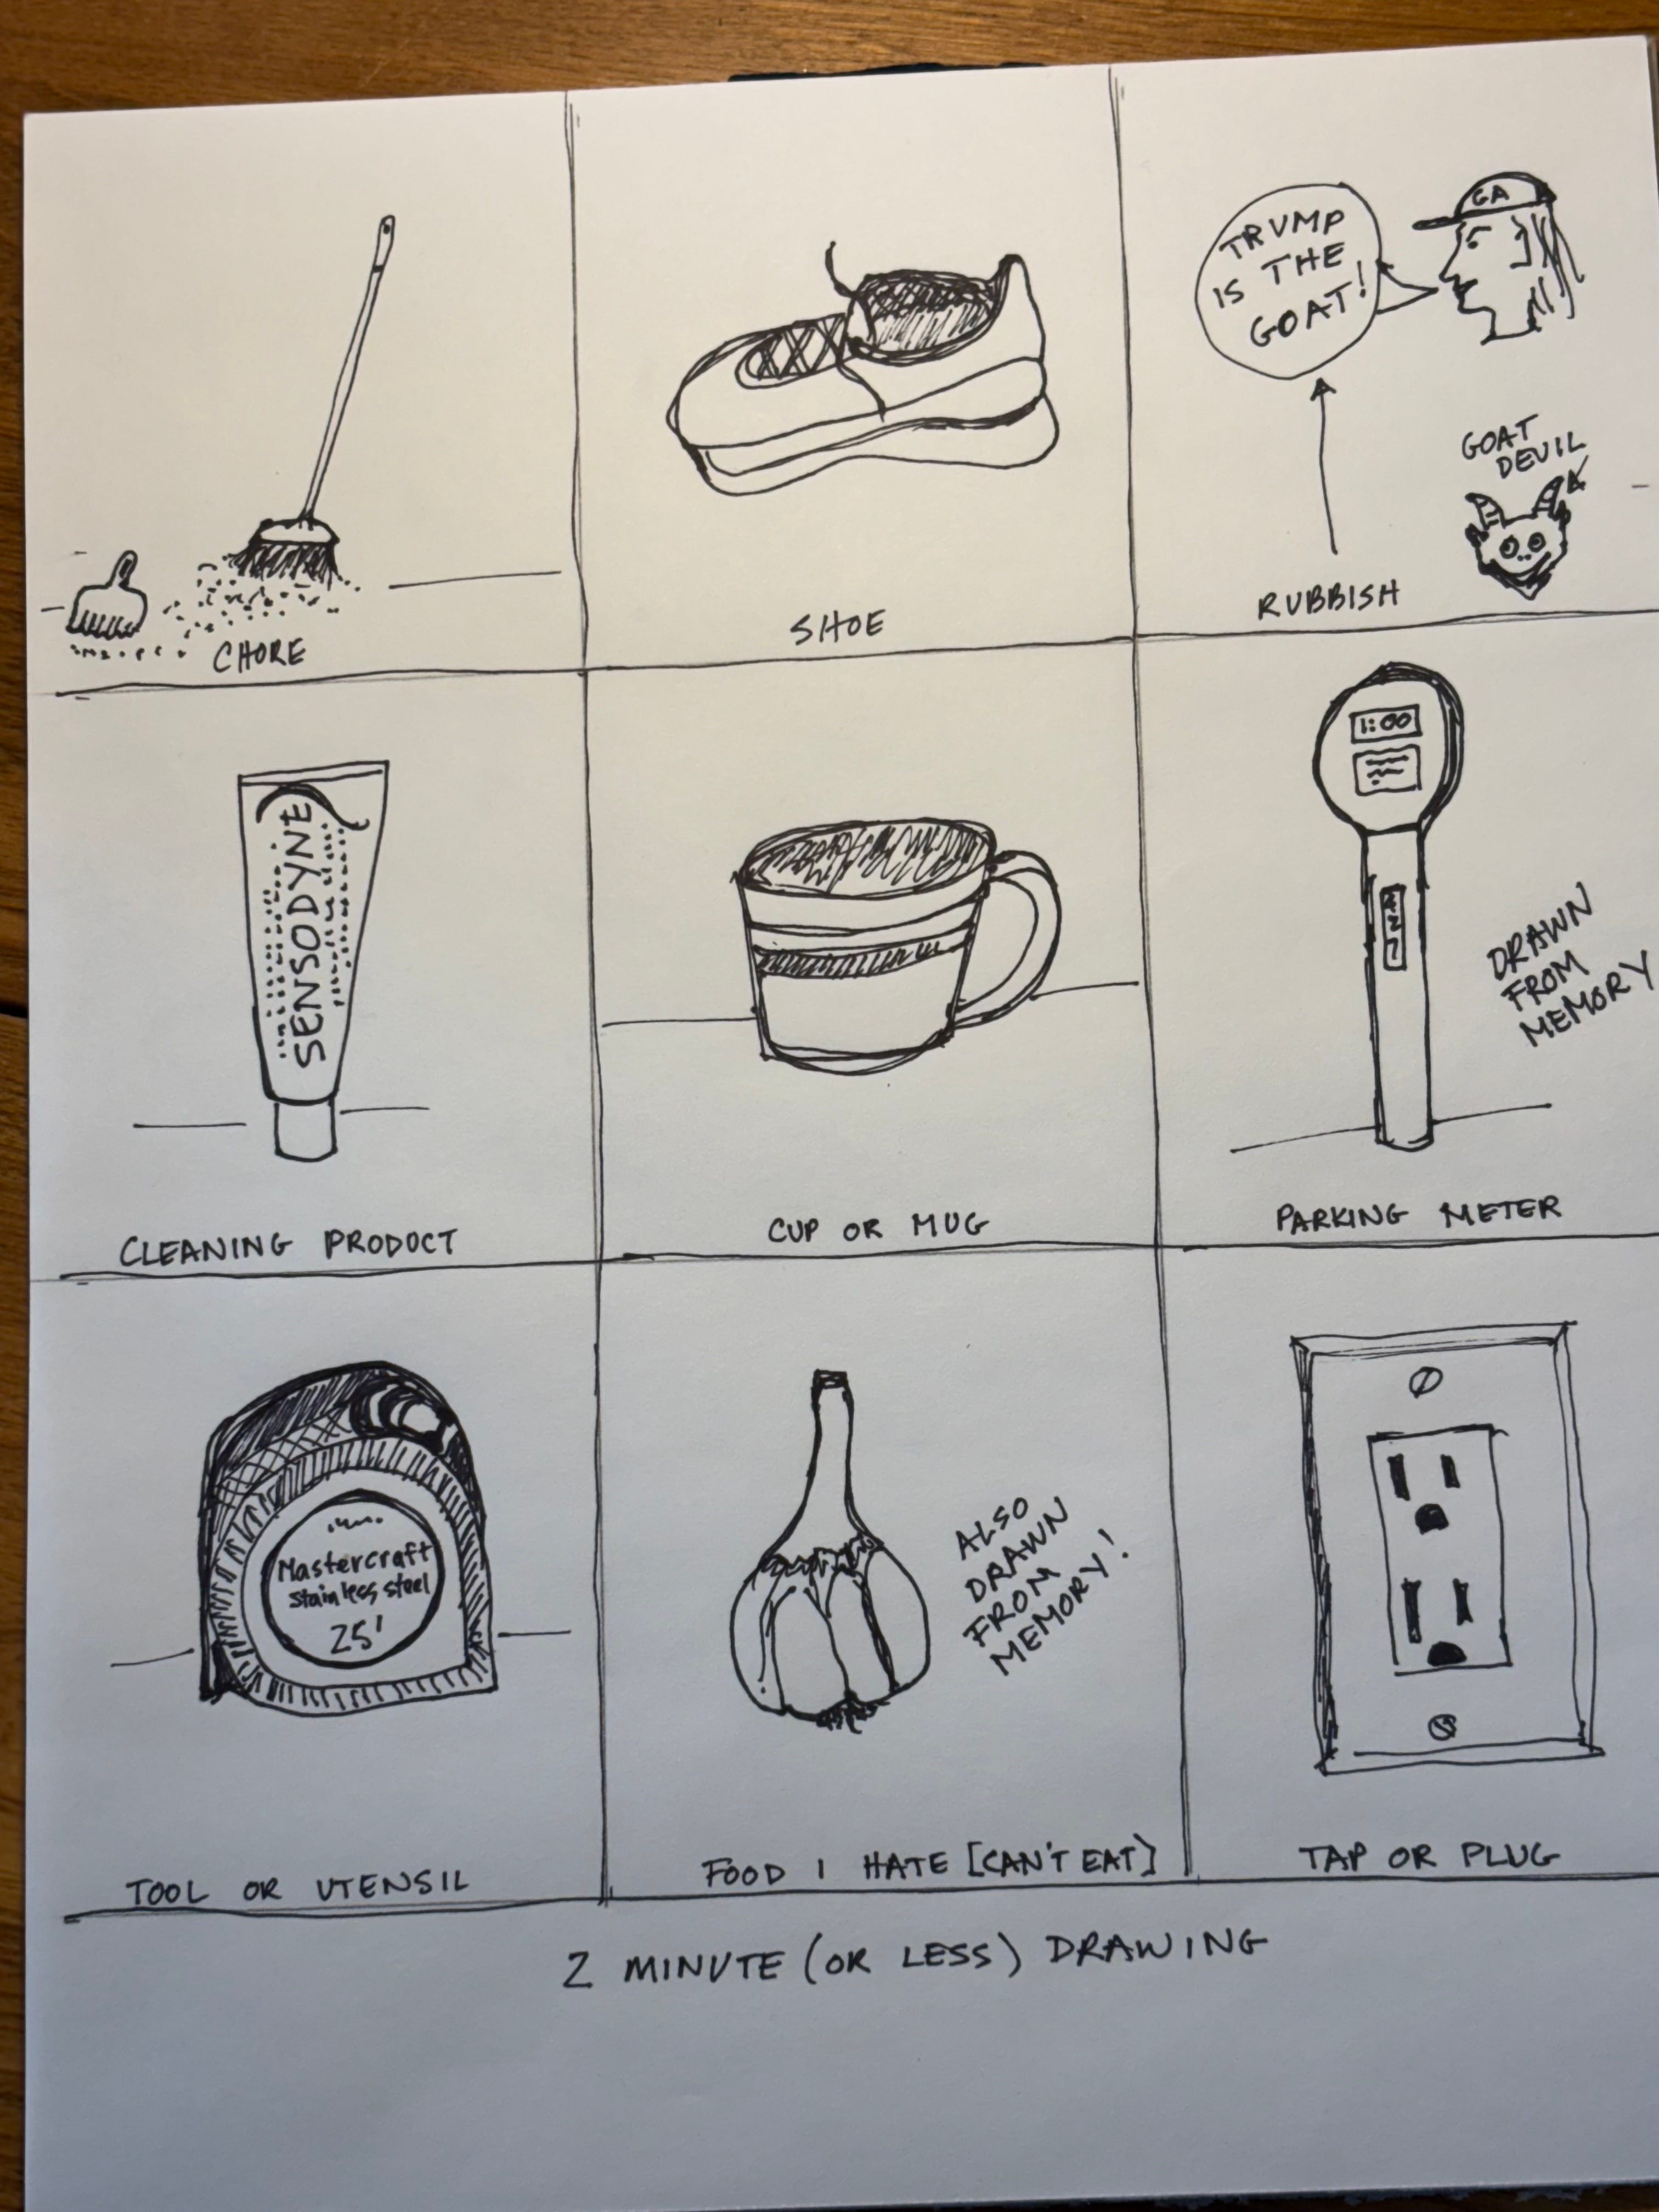 CHORE
SHOE
GA
TRUMP
IS THE
GOAT!
GOAT
DEVIL
RUBBISH
SENSODYNE
CLEANING PRODUCT
CUP OR MUG
1:00
DRAWN
FROM
MEMORY
PARKING METER
Mastercraft
stainless steel
25'
TOOL OR UTENSIL
ALSO
DRAWN
FROM
MEMORY!
FOOD I HATE [CAN'T EAT]
TAP OR PLUG
2 MINUTE (OR LESS) DRAWING